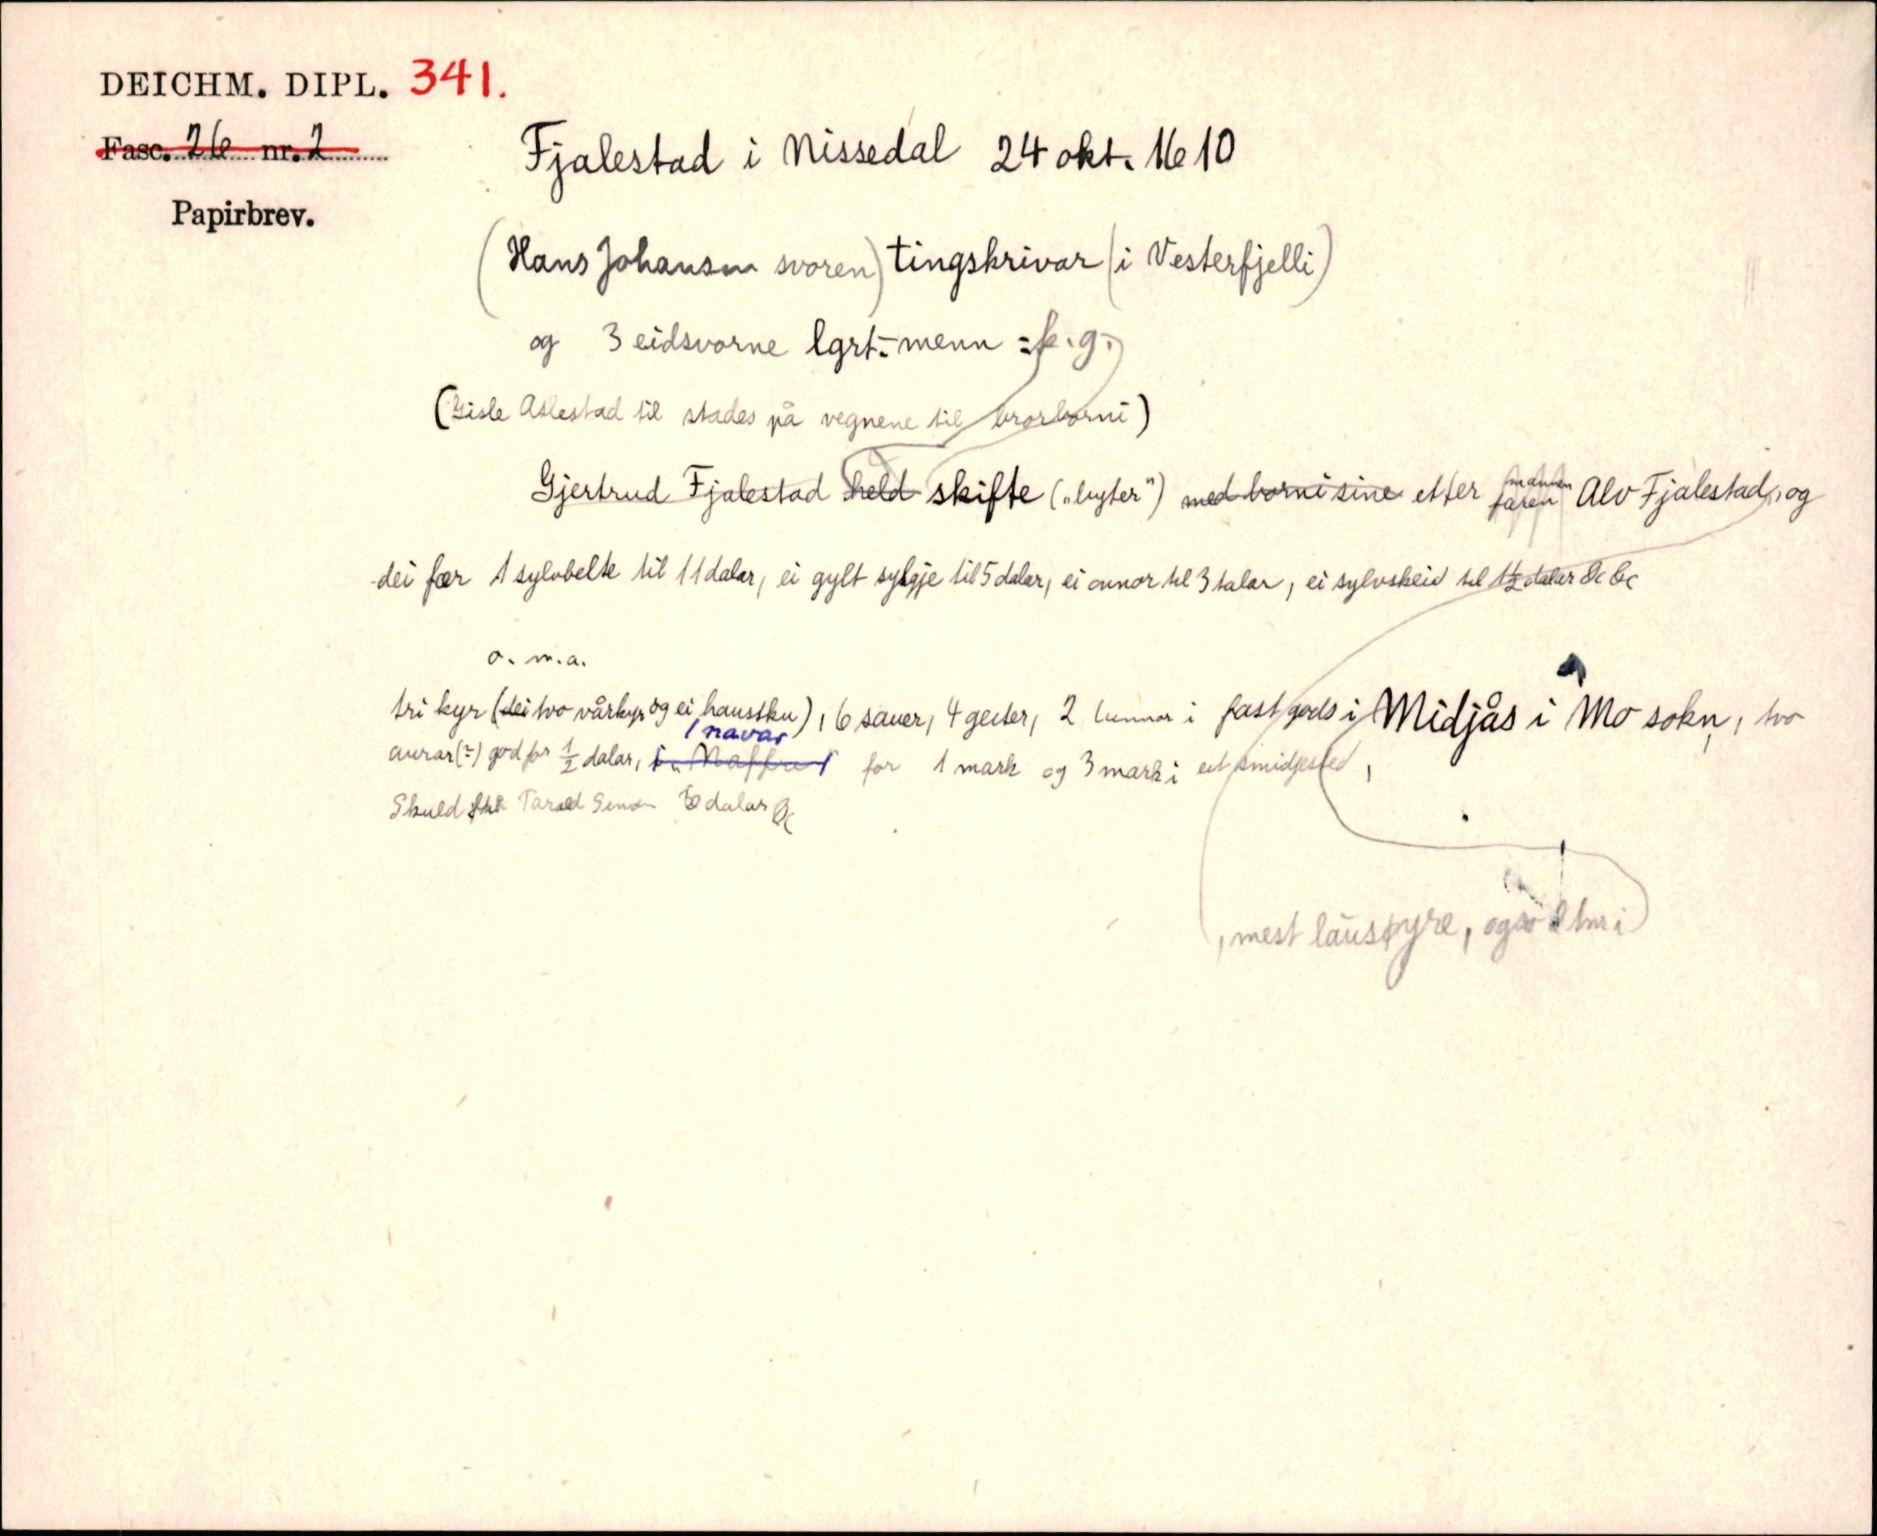 DEICHM. DIPL. 341.
Fasc. 26 nr. 2
Papirbrev.
Fjalestad i Nissedal 24 okt. 1610
(Hans Johansen svoren) tingskrivar (i Vesterfjelli)
og 3 eidsvorne lgrt.-menn = k.g.
(Gisle Aslestad til stades på vegnene til brorborni)
Gjertrud Fjalestad held skifte („byter") med borni sine etter faren mannen Alv Fjalestad, og
dei fær 1 sylvbelte til 11 dalar, ei gylt sylgje til 5 dalar, ei onnor til 3 talar, ei sylvskeid til 1½ dalar &c &c
o. m. a.
tri kyr (dei two vårkyr og ei haustku), 6 sauer, 4 geiter, 2 tunnor i fast gods i Midjås i Mo sokn, tvo
1 navar
aurar (?) god for ½ dalar, for 1 mark og 3 mark i eit smidjested,
Skuld Tarald dalar &c
, mest lausøyre, også 2 tnr i